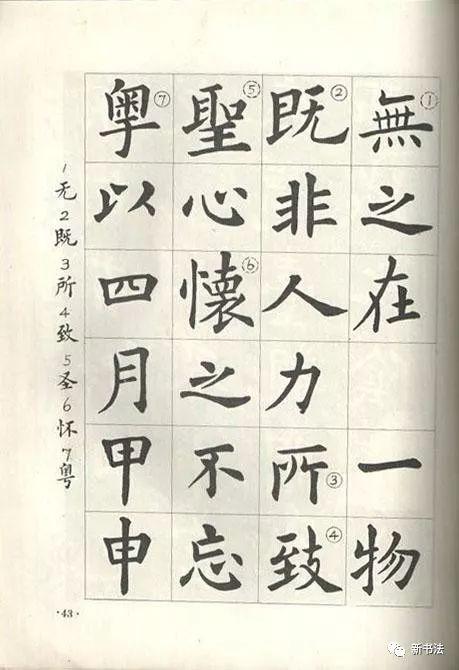 無①之在一物
既②非人力所③致④
聖⑤心懷⑥之不忘
粤⑦以四月甲申
1无2既3所4致5圣6怀7粤
·43·
新书法